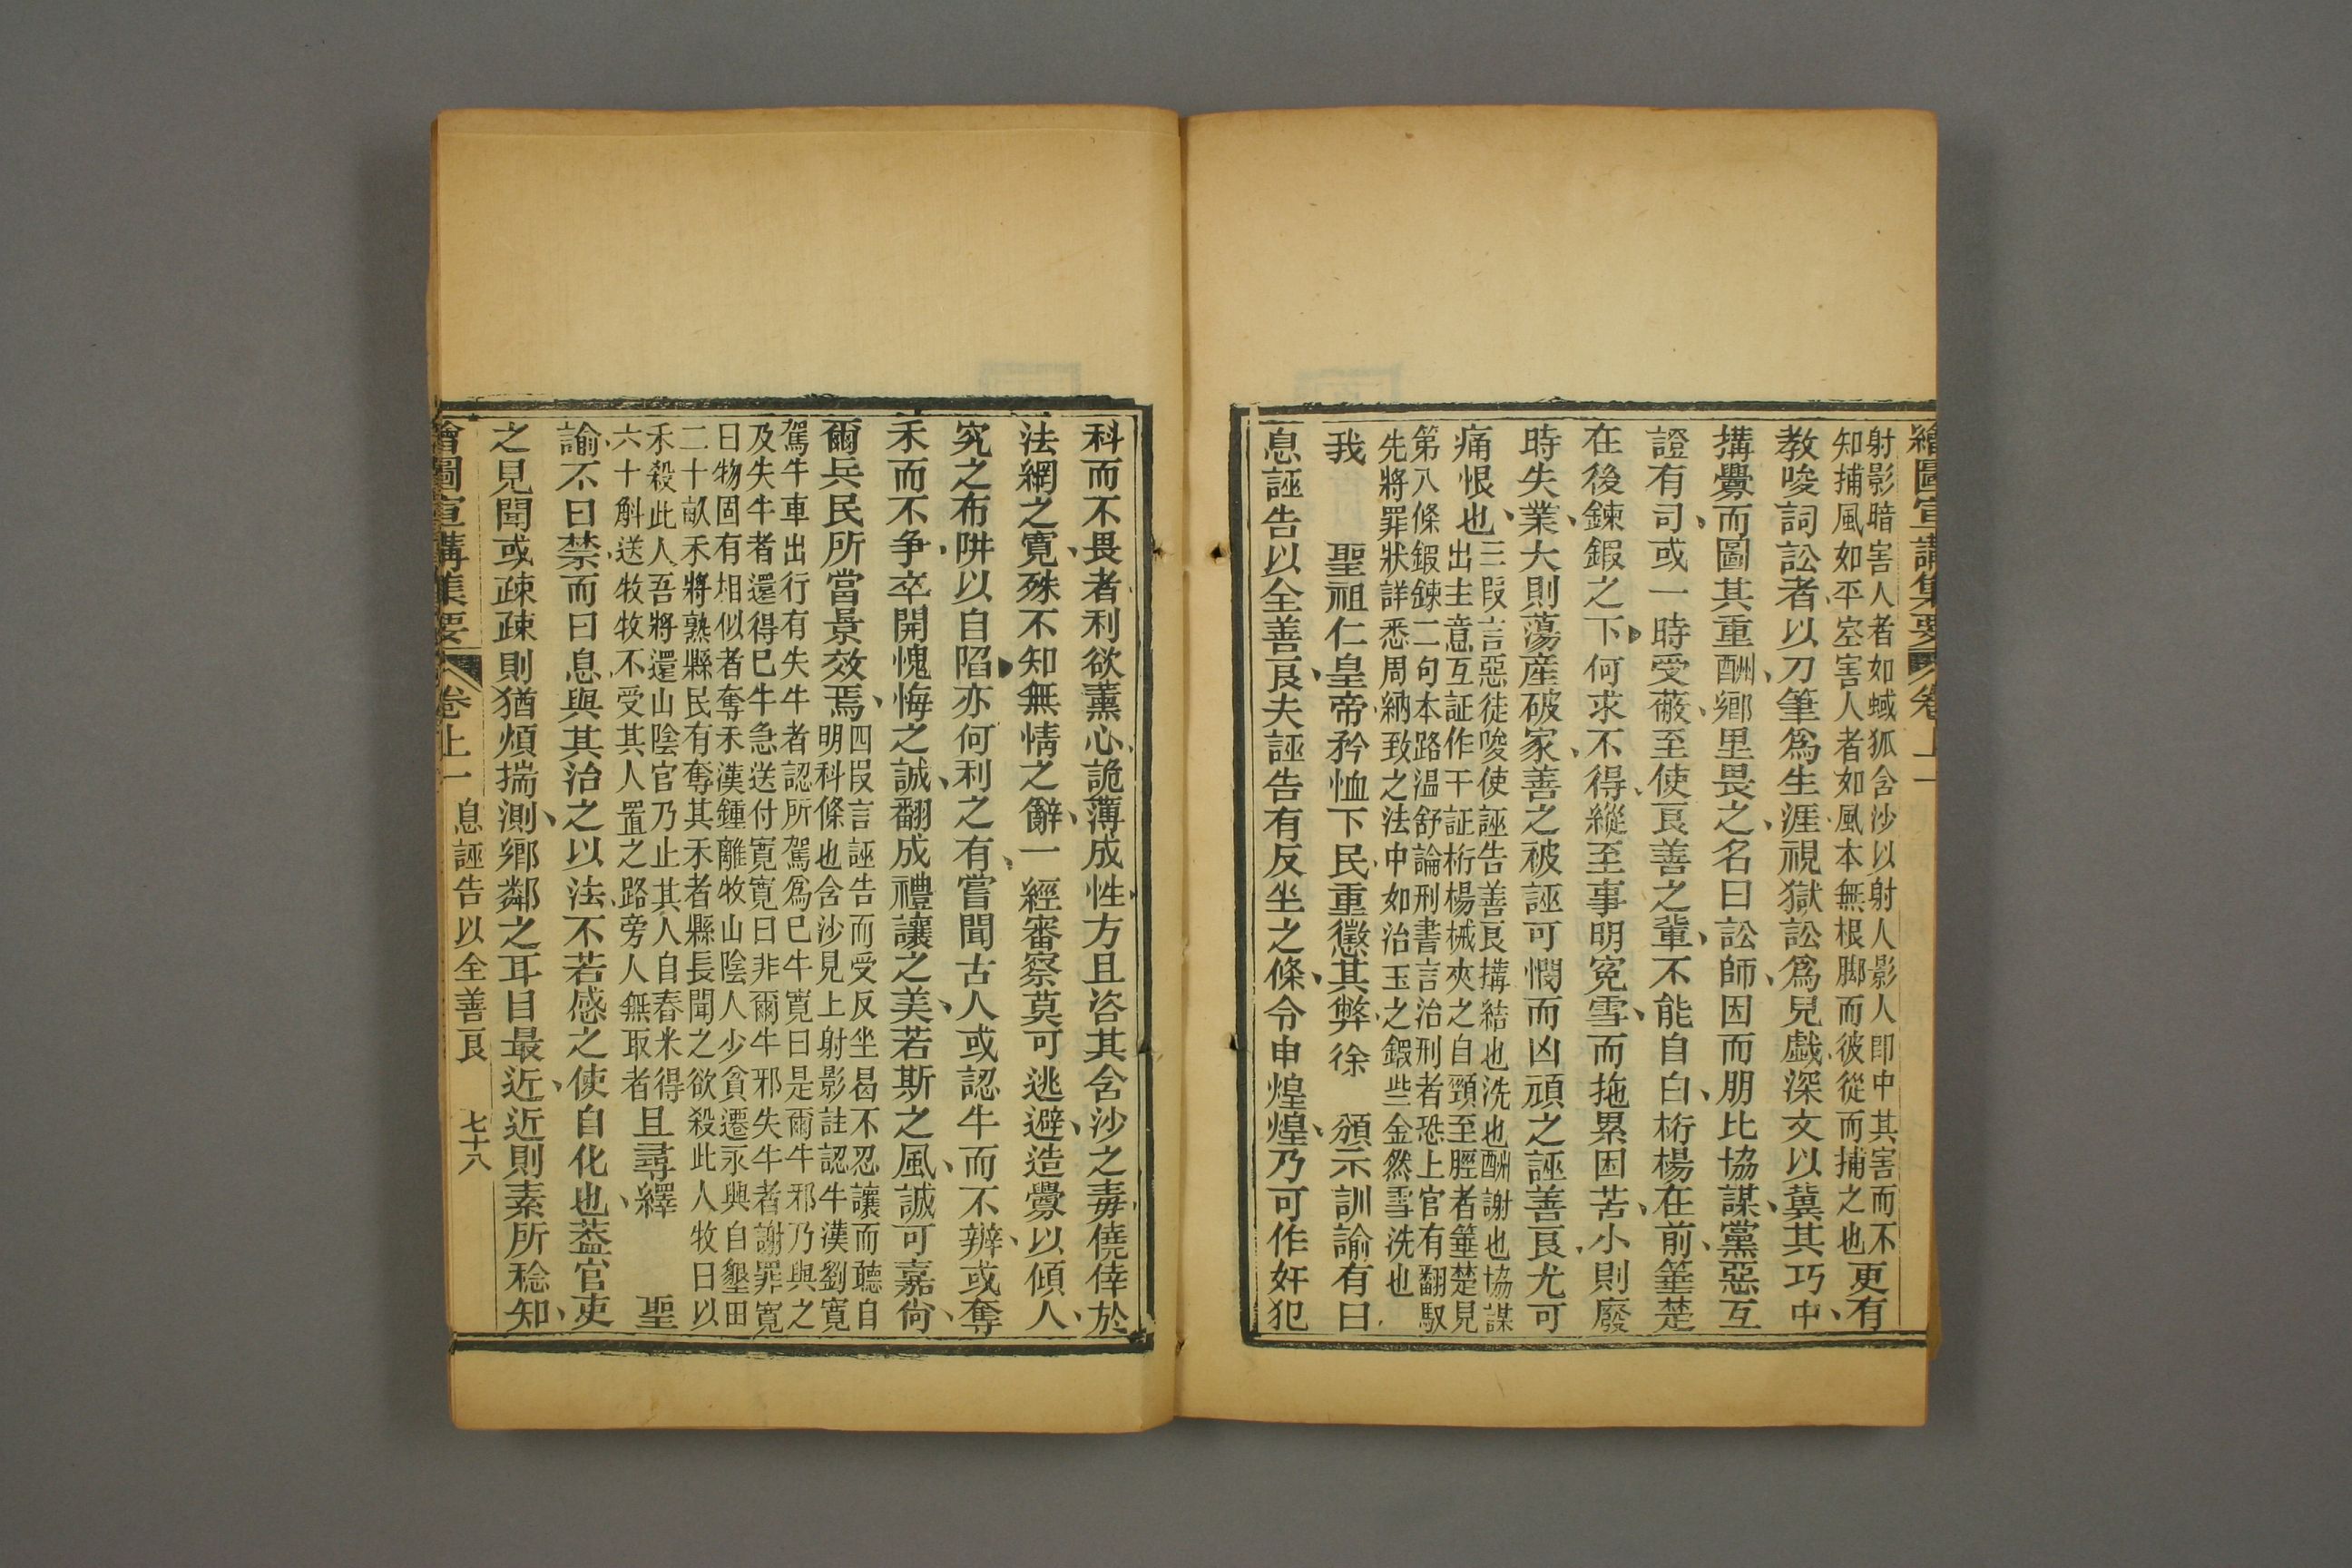 繪圖宣講集要 卷上一
射影暗害人者如蜮狐含沙以射人影人即中其害而不
知捕風如平空害人者如風本無根脚而彼從而捕之也更有
教唆詞訟者以刀筆爲生涯視獄訟爲兒戲深文以冀其巧中
搆釁而圖其重酬鄉里畏之名曰訟師因而朋比協謀黨惡互
證有司或一時受蔽至使良善之輩不能自白桁楊在前箠楚
在後鍊鍜之下何求不得縱至事明寃雪而拖累困苦小則廢
時失業大則蕩産破家善之被誣可憫而凶頑之誣善良尤可
痛恨也三叚言惡徒唆使誣告善良搆結也洗也酬謝也協謀
出主意互証作干証桁楊械夾之自頸至脛者箠楚見
第八條鍜鍊二句本路温舒論刑書言治刑者恐上官有翻馭
先將罪狀詳悉周納致之法中如治玉之鍜些金然雪洗也
我 聖祖仁皇帝矜恤下民重懲其弊徐 頒示訓諭有曰
息誣告以全善良夫誣告有反坐之條令申煌煌乃可作奸犯
科而不畏者利欲薰心詭薄成性方且咨其含沙之毒僥倖於
法網之寛殊不知無情之辭一經審察莫可逃避造釁以傾人
究之布阱以自陷亦何利之有嘗聞古人或認牛而不辦或奪
禾而不争卒開愧悔之誠翻成禮讓之美若斯之風誠可嘉尙
爾兵民所當景效焉四叚言誣告而受反坐曷不忍讓而聽自
明科條也含沙見上射影註認牛漢劉寛
駕牛車出行有失牛者認所駕爲巳牛寛曰是爾牛邪乃與之
及失牛者還得巳牛急送付寛寛曰非爾牛邪失牛者謝罪寛
曰物固有相似者奪禾漢鍾離牧山陰人少貧遷永興自墾田
二十畝禾將熟縣民有奪其禾者縣長聞之欲殺此人牧曰以
禾殺此人吾將還山陰官乃止其人自舂米得
六十斛送牧牧不受其人置之路旁人無取者且尋繹 聖
諭不曰禁而曰息與其治之以法不若感之使自化也葢官吏
之見聞或疎疎則猶煩揣測鄉鄰之耳目最近近則素所稔知
繪圖宣講集要 卷上一 息誣告以全善良 七十八